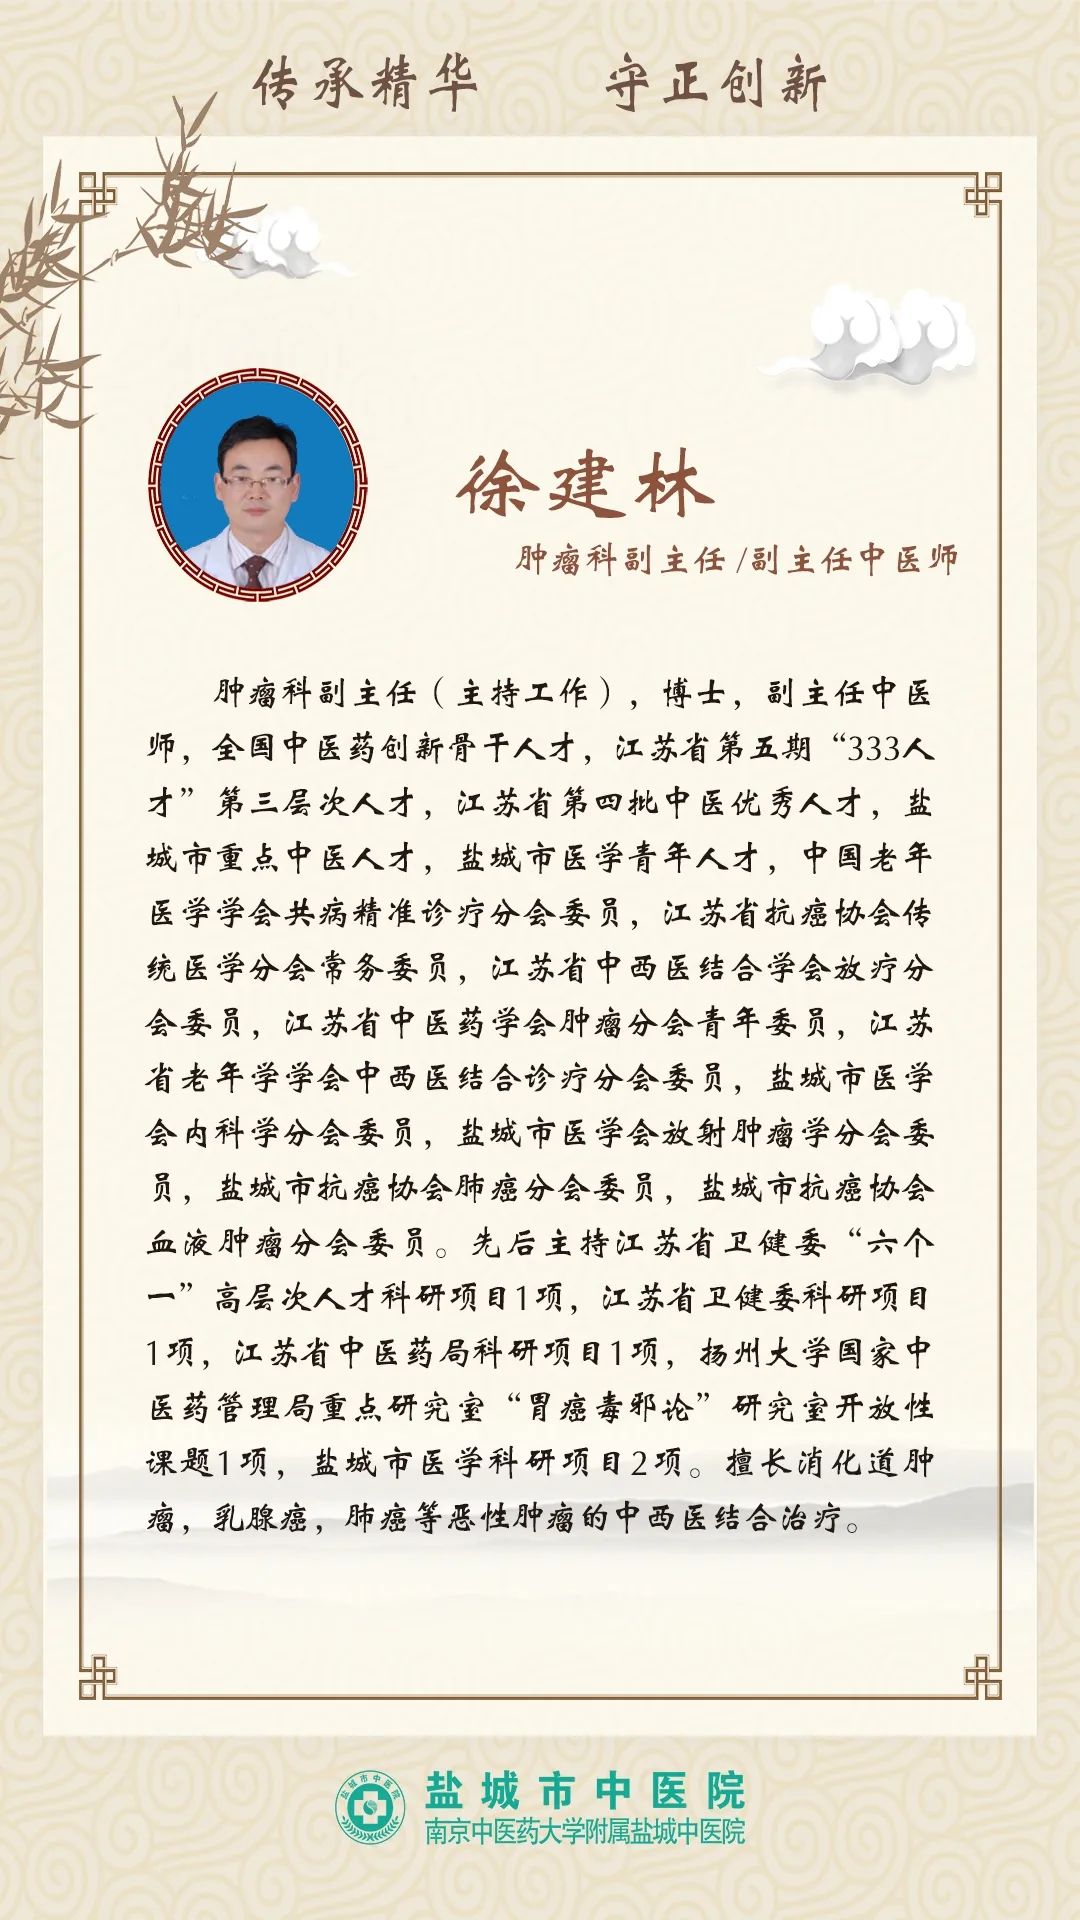 传承精华 守正创新
徐建林
肿瘤科副主任/副主任中医师
肿瘤科副主任（主持工作），博士，副主任中医
师，全国中医药创新骨干人才，江苏省第五期“333人
才”第三层次人才，江苏省第四批中医优秀人才，盐
城市重点中医人才，盐城市医学青年人才，中国老年
医学学会共病精准诊疗分会委员，江苏省抗癌协会传
统医学分会常务委员，江苏省中西医结合学会放疗分
会委员，江苏省中医药学会肿瘤分会青年委员，江苏
省老年学学会中西医结合诊疗分会委员，盐城市医学
会内科学分会委员，盐城市医学会放射肿瘤学分会委
员，盐城市抗癌协会肺癌分会委员，盐城市抗癌协会
血液肿瘤分会委员。先后主持江苏省卫健委“六个
一”高层次人才科研项目1项，江苏省卫健委科研项目
1项，江苏省中医药局科研项目1项，扬州大学国家中
医药管理局重点研究室“胃癌毒邪论”研究室开放性
课题1项，盐城市医学科研项目2项。擅长消化道肿
瘤，乳腺癌，肺癌等恶性肿瘤的中西医结合治疗。
盐城市中医院
盐城市中医院
南京中医药大学附属盐城中医院